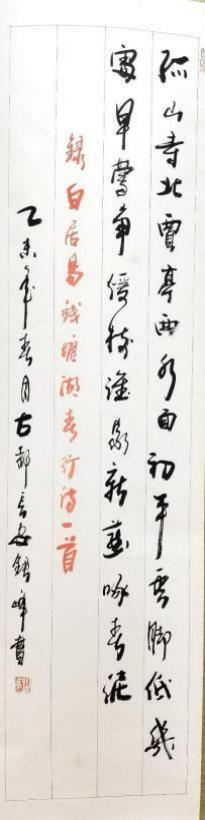 孤山寺北賈亭西水面初平云脚低幾
處早鶯争暖樹誰家新燕啄春泥
録白居易錢塘湖春行诗一首
乙未年春月古都长安峰書